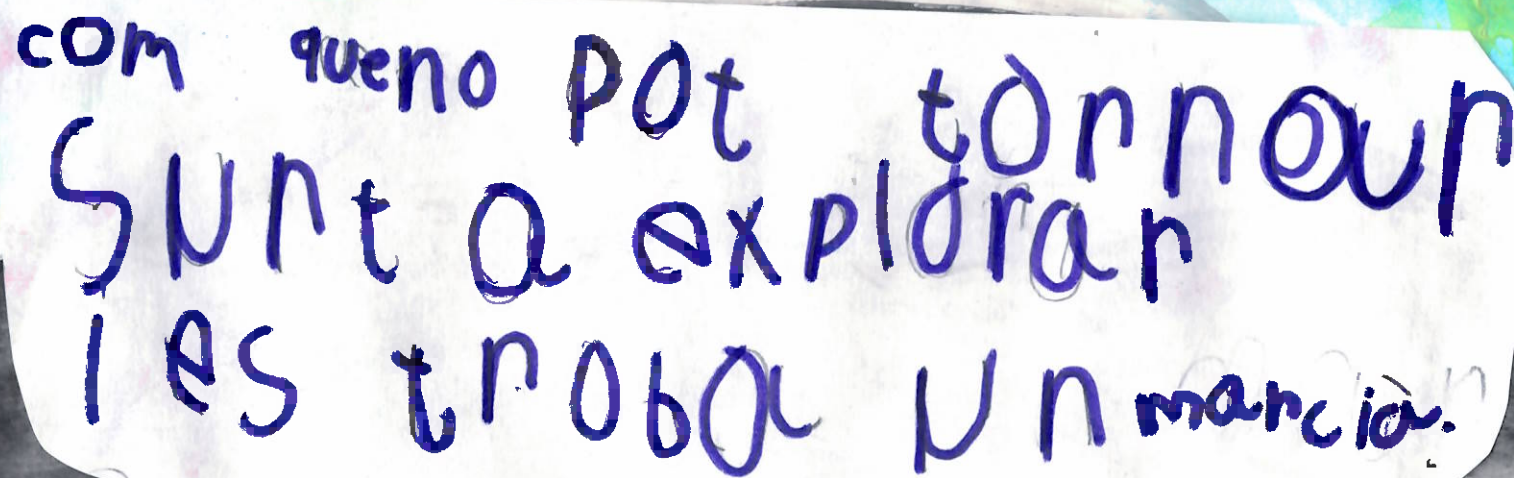 com queno pot tornaur
surt a explorar
i es troba un marcià.